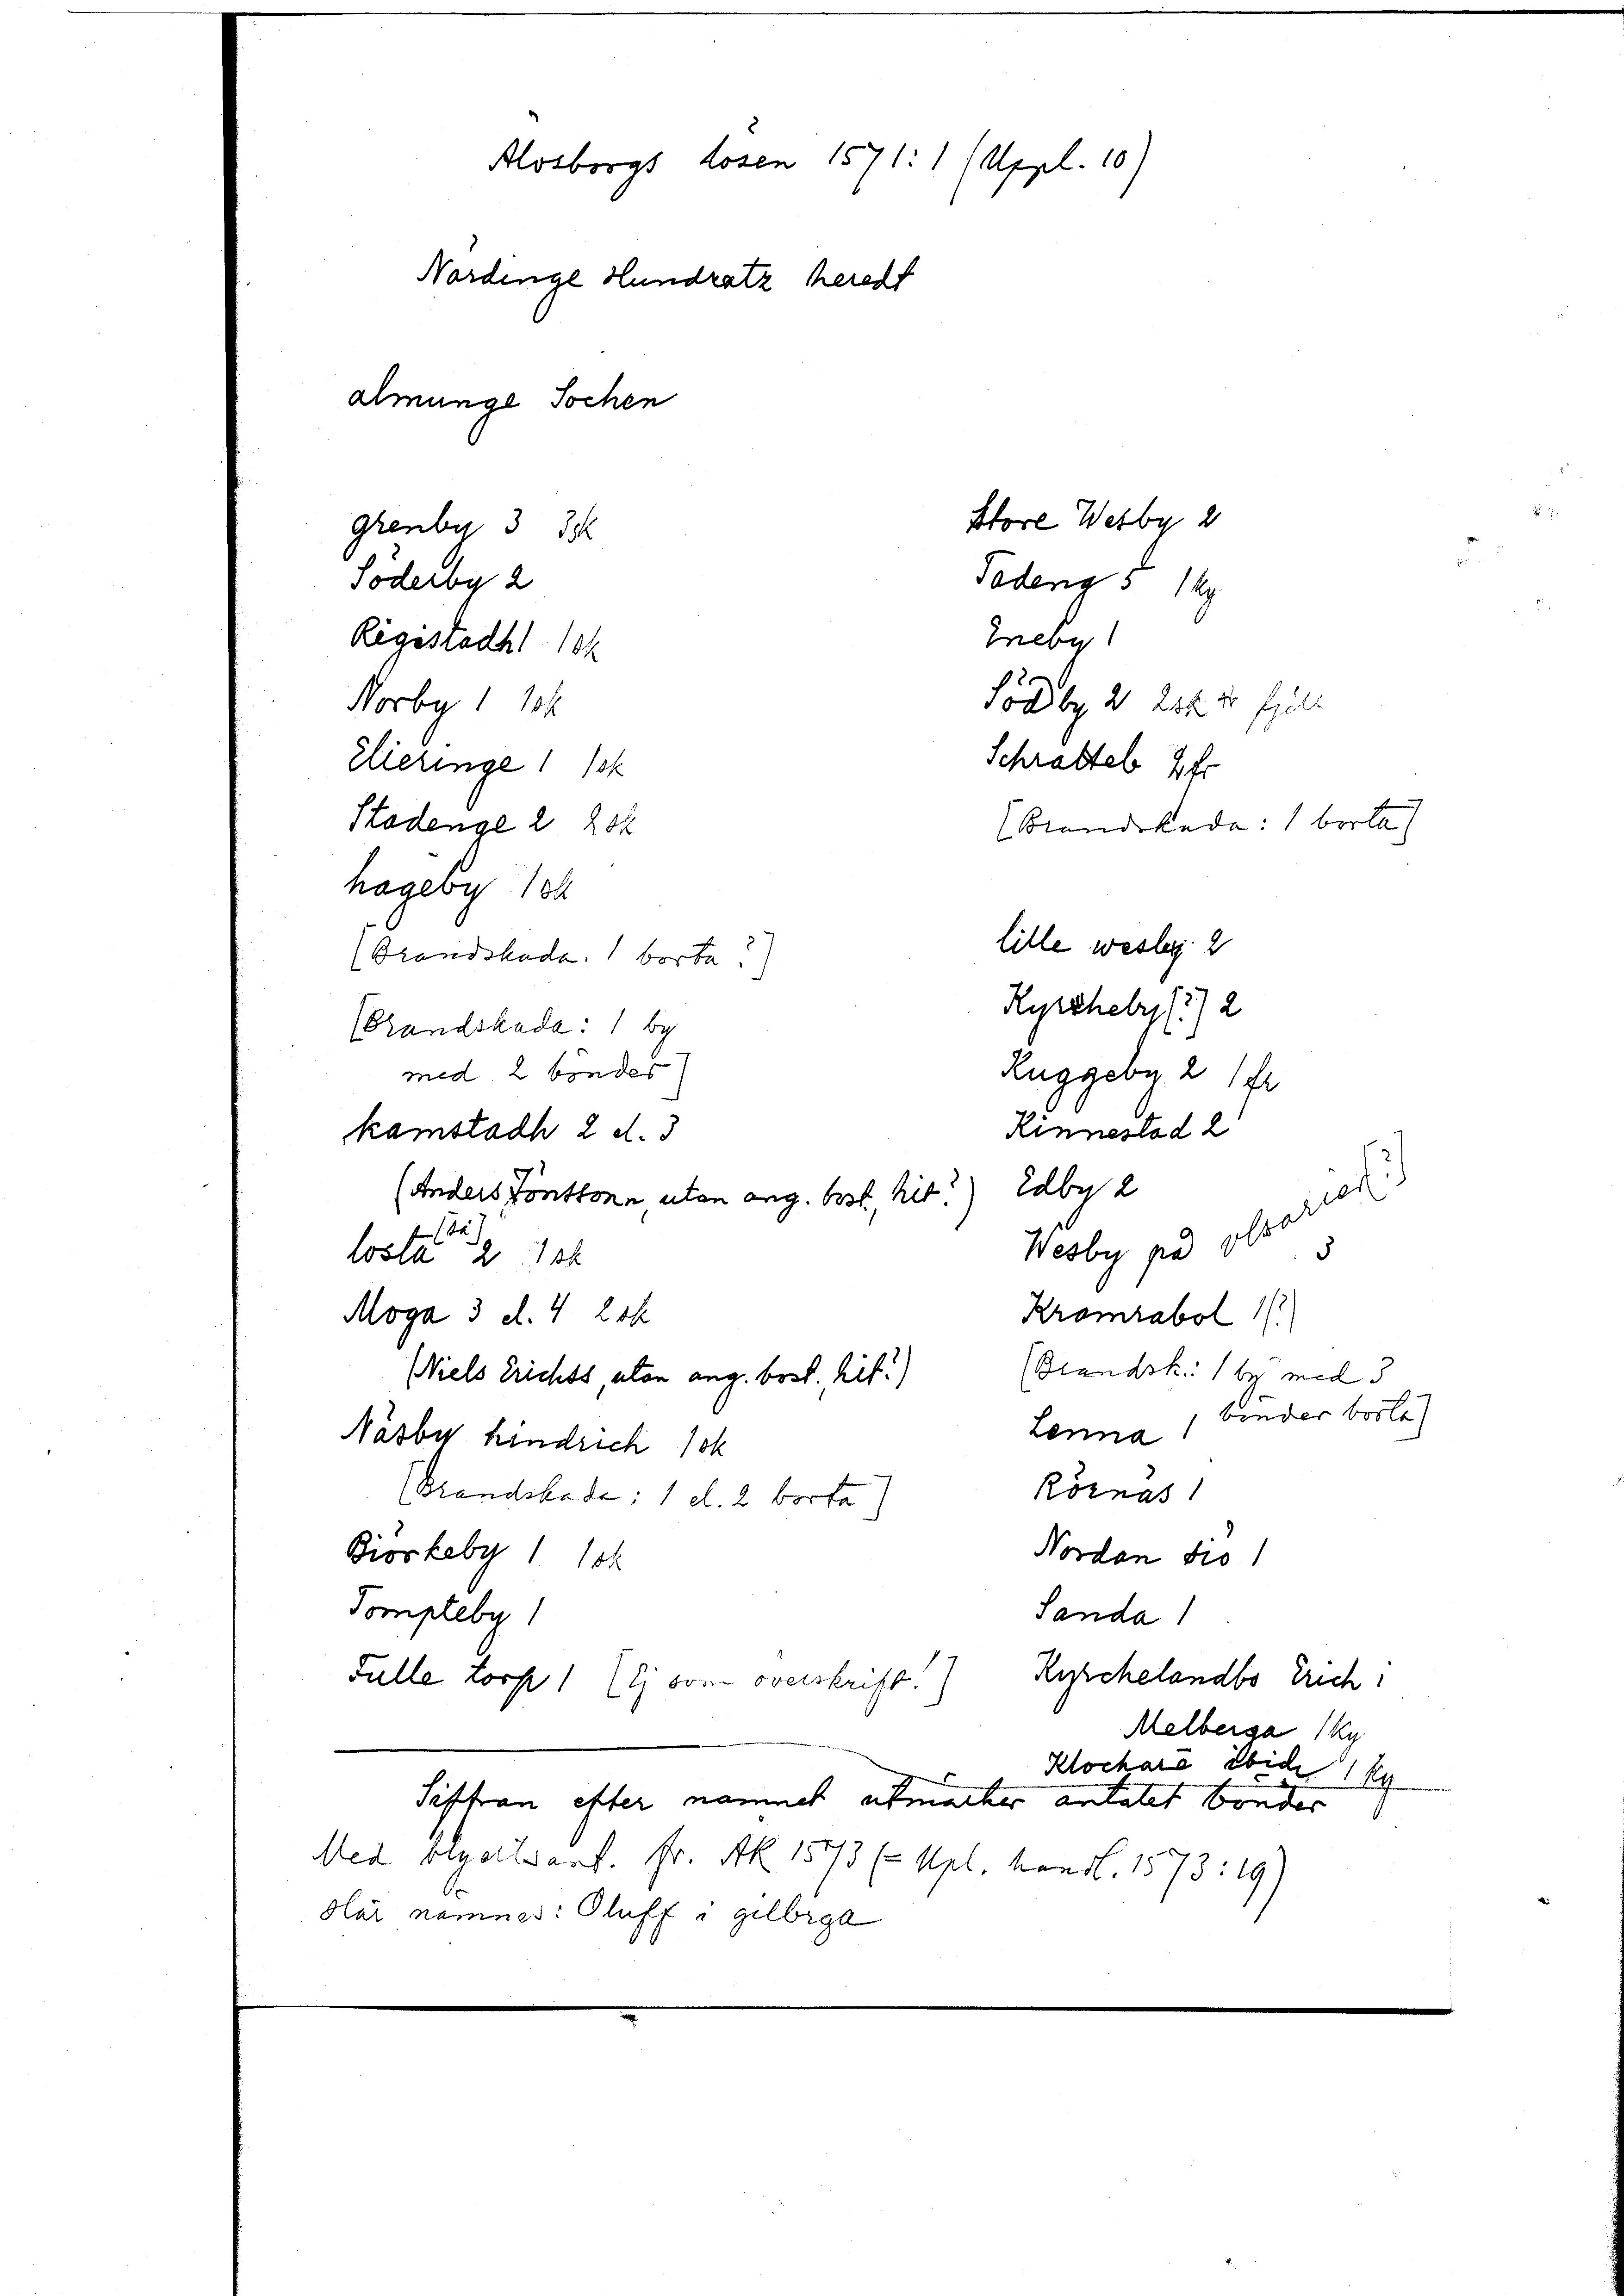 Älvsborgs lösen 1571: 1 (Uppl. 10)
Närdinge Hundratz heredt
almunge Sochen
grenby 3 3sk
Söderby 2
Rigistadh 1 1sk
Norby 1 1sk
Elieringe 1 1sk
Stadenge 2 2sk
hageby 1sk
(Brandskada. 1 borta?)
(Brandskada: 1 by
med 2 bönder)
kamstadh 2 el. 3
(Anders Jönsson, utan ang. bost., hit?)
losta (sta) 2 1sk
Moga 3 el. 4 2sk
(Niels Erichss, utan ang. bost., hit?)
Näsby hindrich 1sk
(Brandskada: 1 el. 2 borta)
Biörkeby 1 1sk
Tompteby 1
Fulle torp 1 (Ej som överskrift!)
Store Wesby 2
Tadeng 5 1ky
Eneby 1
Södby 2 2sk
Schratteb 2fr
(Brandskada: 1 borta)
lille wesby 2
Kyrcheby (?) 2
Ruggeby 2 1fr
Kinnestad 2
Edby 2
Wesby på 3
Kramrabol 1(?)
(Brandsk.: 1 by med 3
bönder borta)
Lenna 1
Körnäs 1
Nordan siö 1
Sanda 1
Kyrchelandbo Erich i
Melberga 1ky
Klochare ibid 1 ky
Siffran efter namnet utmärker antalet bönder
Med fr. AK 1573 (= Upl. handl. 1573:19)
Här nämnes: Oluff i gilbrga